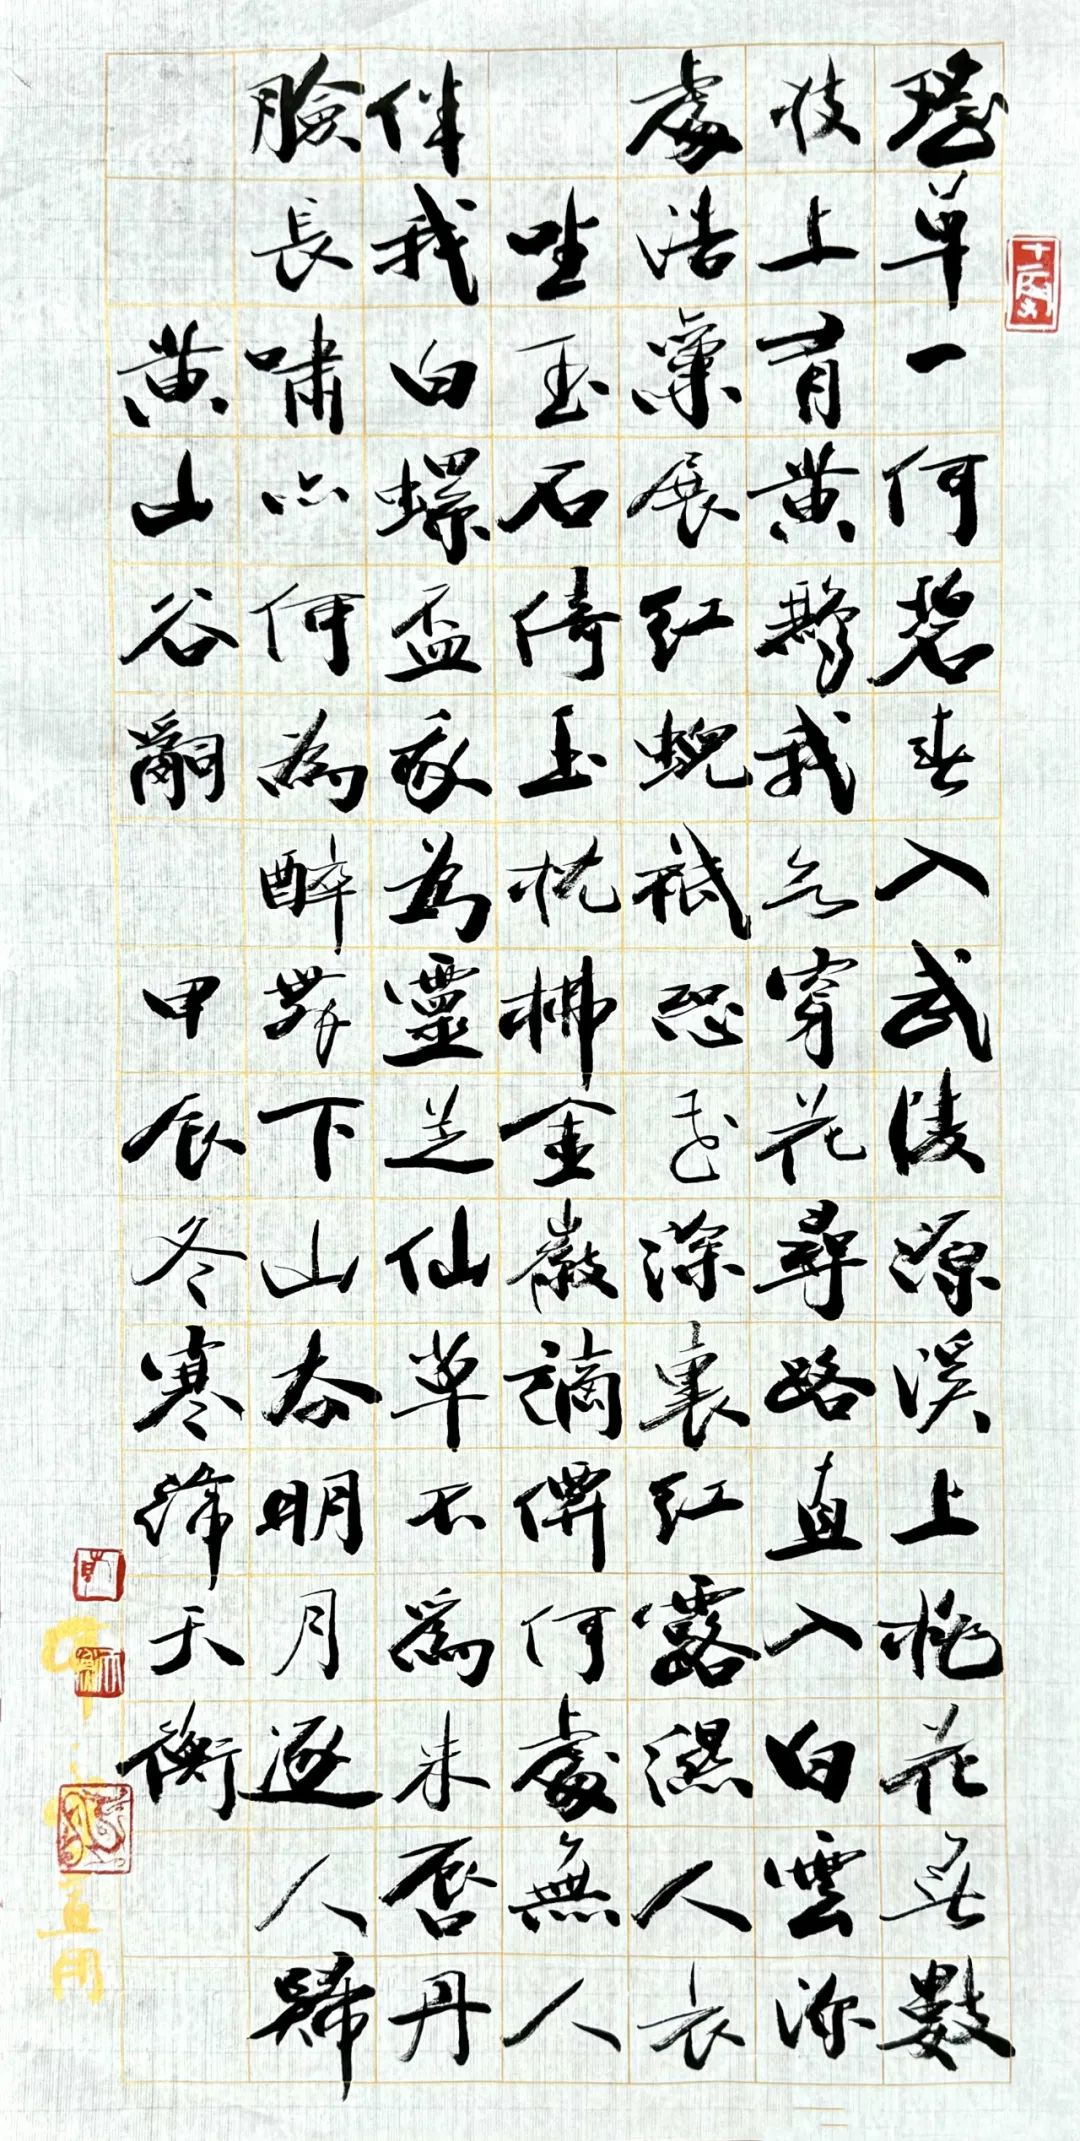 瑤草一何碧春入武陵源溪上桃花無數
枝上有黄鸝我欲穿花尋路直入白雲深
處浩氣展紅蜺祇恐花深裏紅露濕人衣
坐玉石倚玉枕拂金徽謫僊何處無人
伴我白螺盃我為靈芝仙草不為朱唇丹
臉長嘯亦何為醉舞下山去明月逐人歸
黄山谷詞 甲辰冬寒天衡